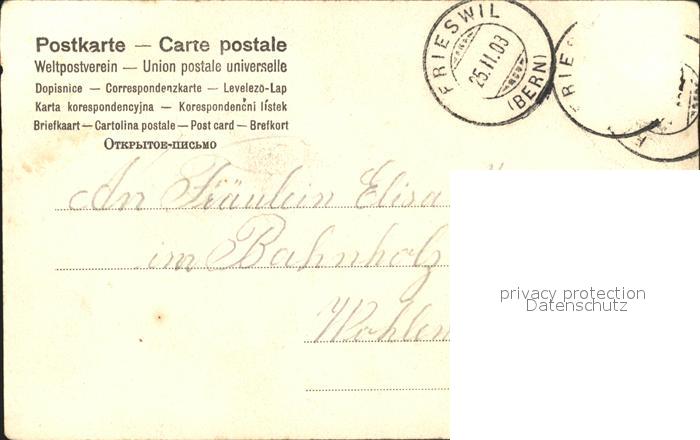 Postkarte — Carte postale
Weltpostverein — Union postale universelle
Dopisnice — Correspondenzkarte — Levelező-Lap
Karta korespondencyjna — Korespondenční lístek
Briefkaart — Cartolina postale — Post card — Brefkort
Открытое-письмо
FRIESWIL
25.II.03
(BERN)
RIE
An Fräulein Elisa
im Bahnholz
Wohlen
privacy protection
Datenschutz